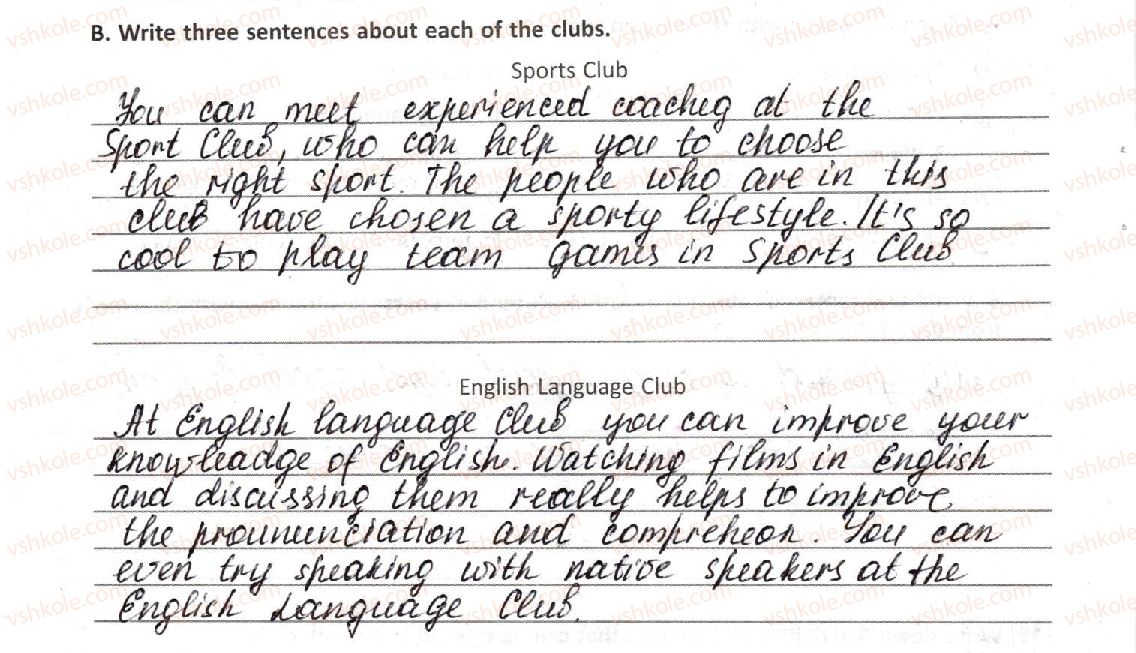 B. Write three sentences about each of the clubs.
Sports Club
You can meet experienced coacheg at the
Sport Club, who can help you to choose
the right sport. The people who are in this
club have chosen a sporty lifestyle. It's so
cool to play team games in Sports Club
English Language Club
At English language Club you can improve your
knowleadge of English. Watching films in English
and discussing them really helps to improve
the prounuenciation and compreheon. You can
even try speaking with native speakers at the
English Language Club.
vshkole.com